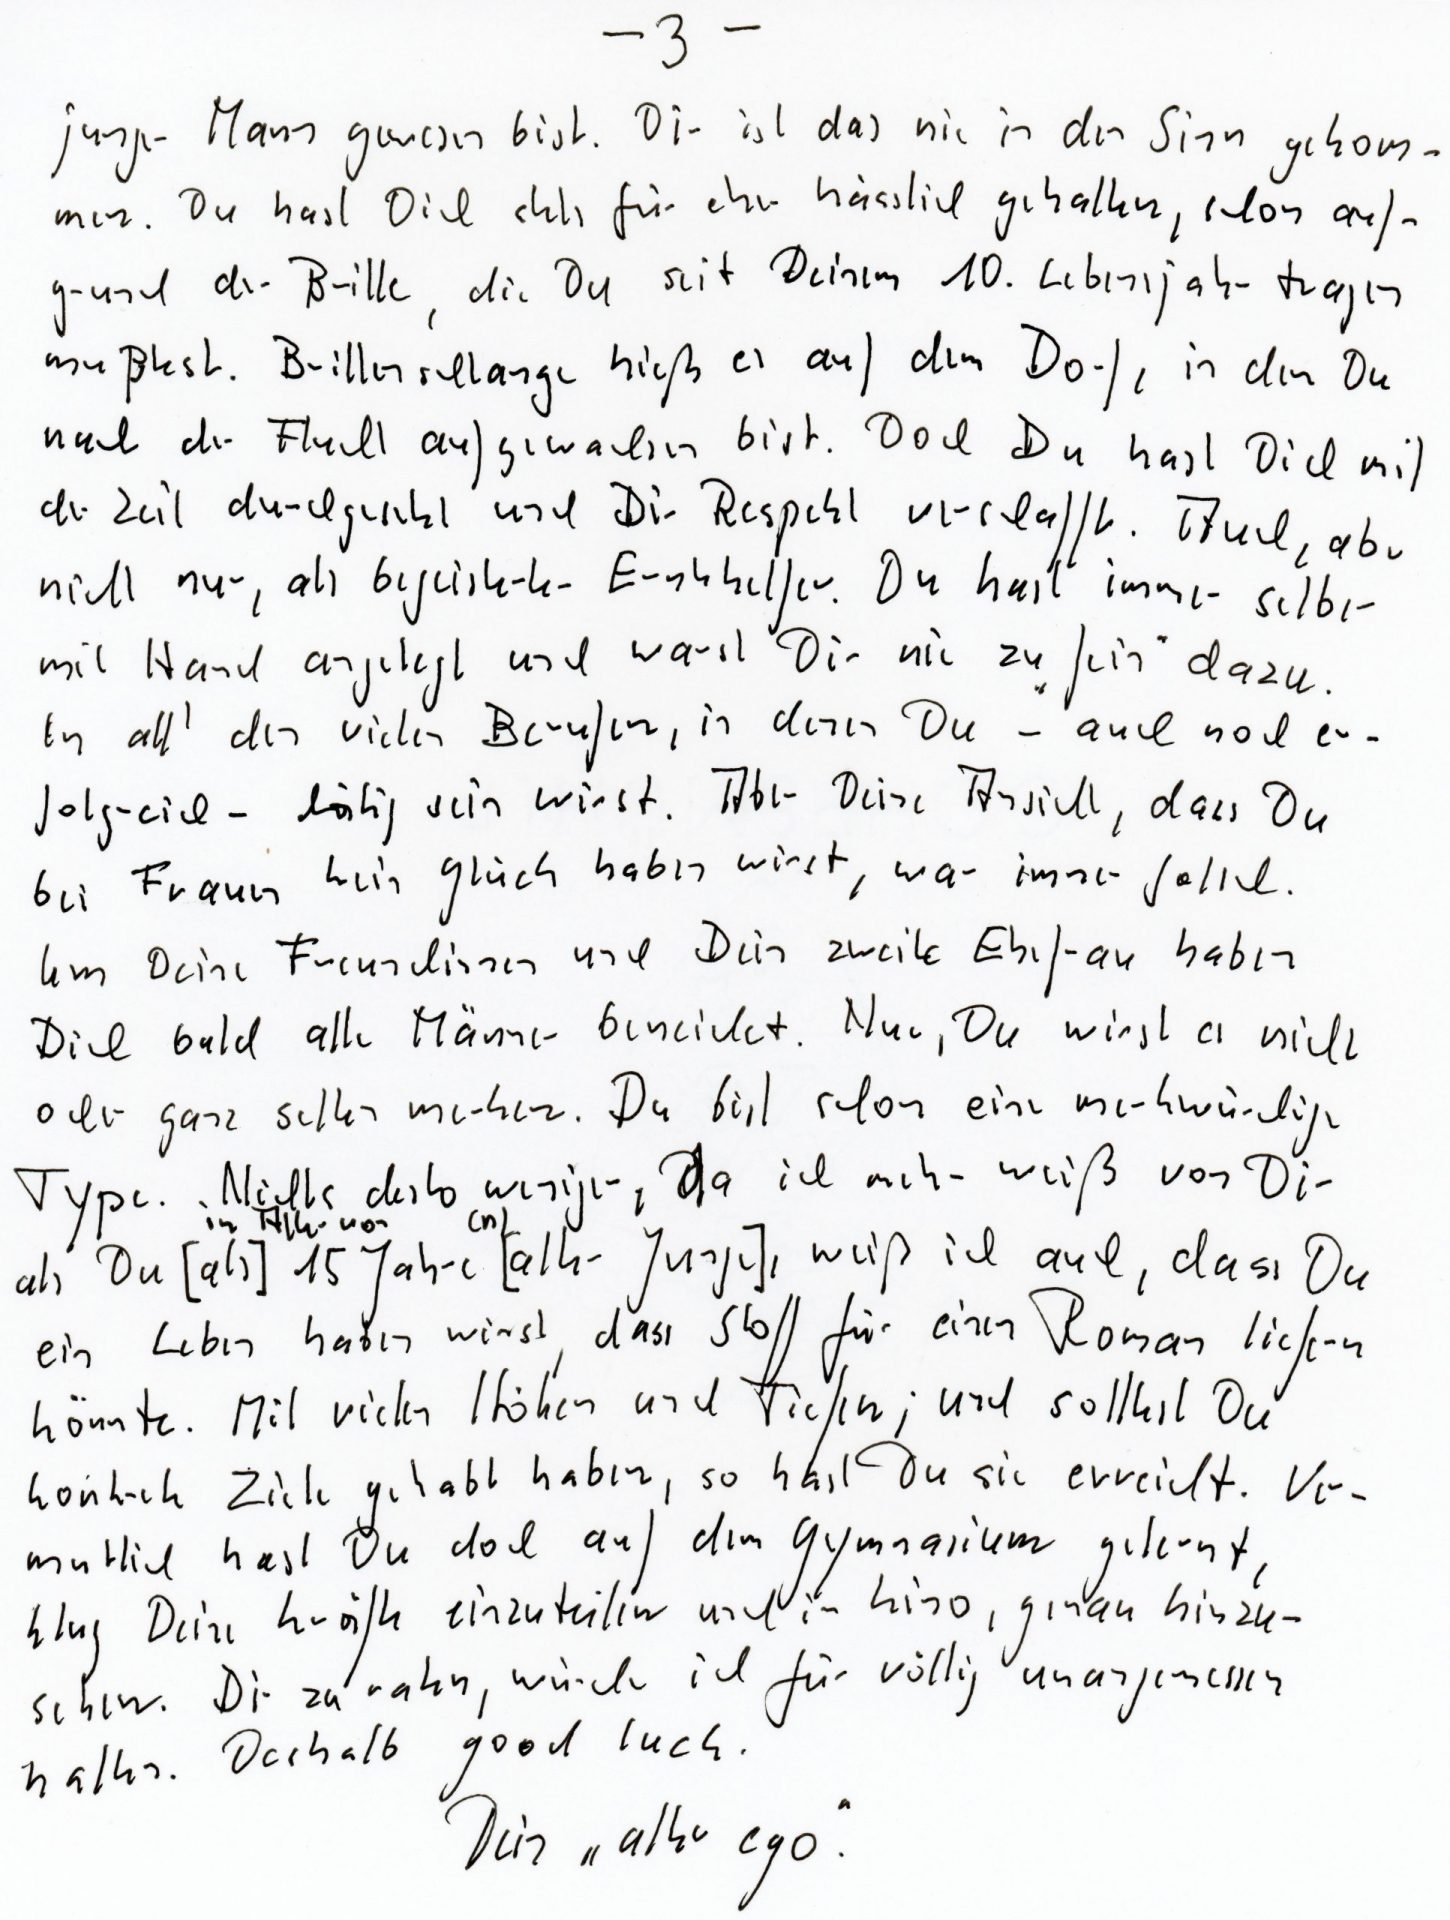 – 3 –
junger Mann gewesen bist. Dir ist das nie in den Sinn gekom-
men. Du hast Dich stets für eher hässlich gehalten, schon auf-
grund der Brille, die Du seit Deinem 10. Lebensjahr tragen
mußtest. Brillenschlange hieß es auf dem Dorf, in dem Du
nach der Flucht aufgewachsen bist. Doch Du hast Dich mit
der Zeit durchgesetzt und Dir Respekt verschafft. Auch, aber
nicht nur, als begeisterter Erntehelfer. Du hast immer selber
mit Hand angelegt und warst Dir nie zu „fein“ dazu.
In all' den vielen Berufen, in denen Du – auch noch er-
folgreich – tätig sein wirst. Aber Deine Ansicht, dass Du
bei Frauen kein Glück haben wirst, war immer falsch.
Um Deine Freundinnen und Dein zweite Ehefrau haben
Dich bald alle Männer beneidet. Nur, Du wirst es nicht
oder ganz selten merken. Du bist schon eine merkwürdige
Type. Nichts desto weniger, Da ich mehr weiß von Dir
in Alter von (n)
als Du [als] 15 Jahre [alter Junge], weiß ich auch, dass Du
ein Leben haben wirst, dass Stoff für einen Roman liefern
könnte. Mit vielen Höhen und Tiefen; und solltest Du
konkrete Ziele gehabt haben, so hast Du sie erreicht. Ver-
mutlich hast Du doch auf dem Gymnasium gelernt,
klug Deine Kräfte einzuteilen und im Kino, genau hinzu-
sehen. Dir zu raten, würde ich für völlig unangemessen
halten. Deshalb good luck.
Dein „alter ego“.